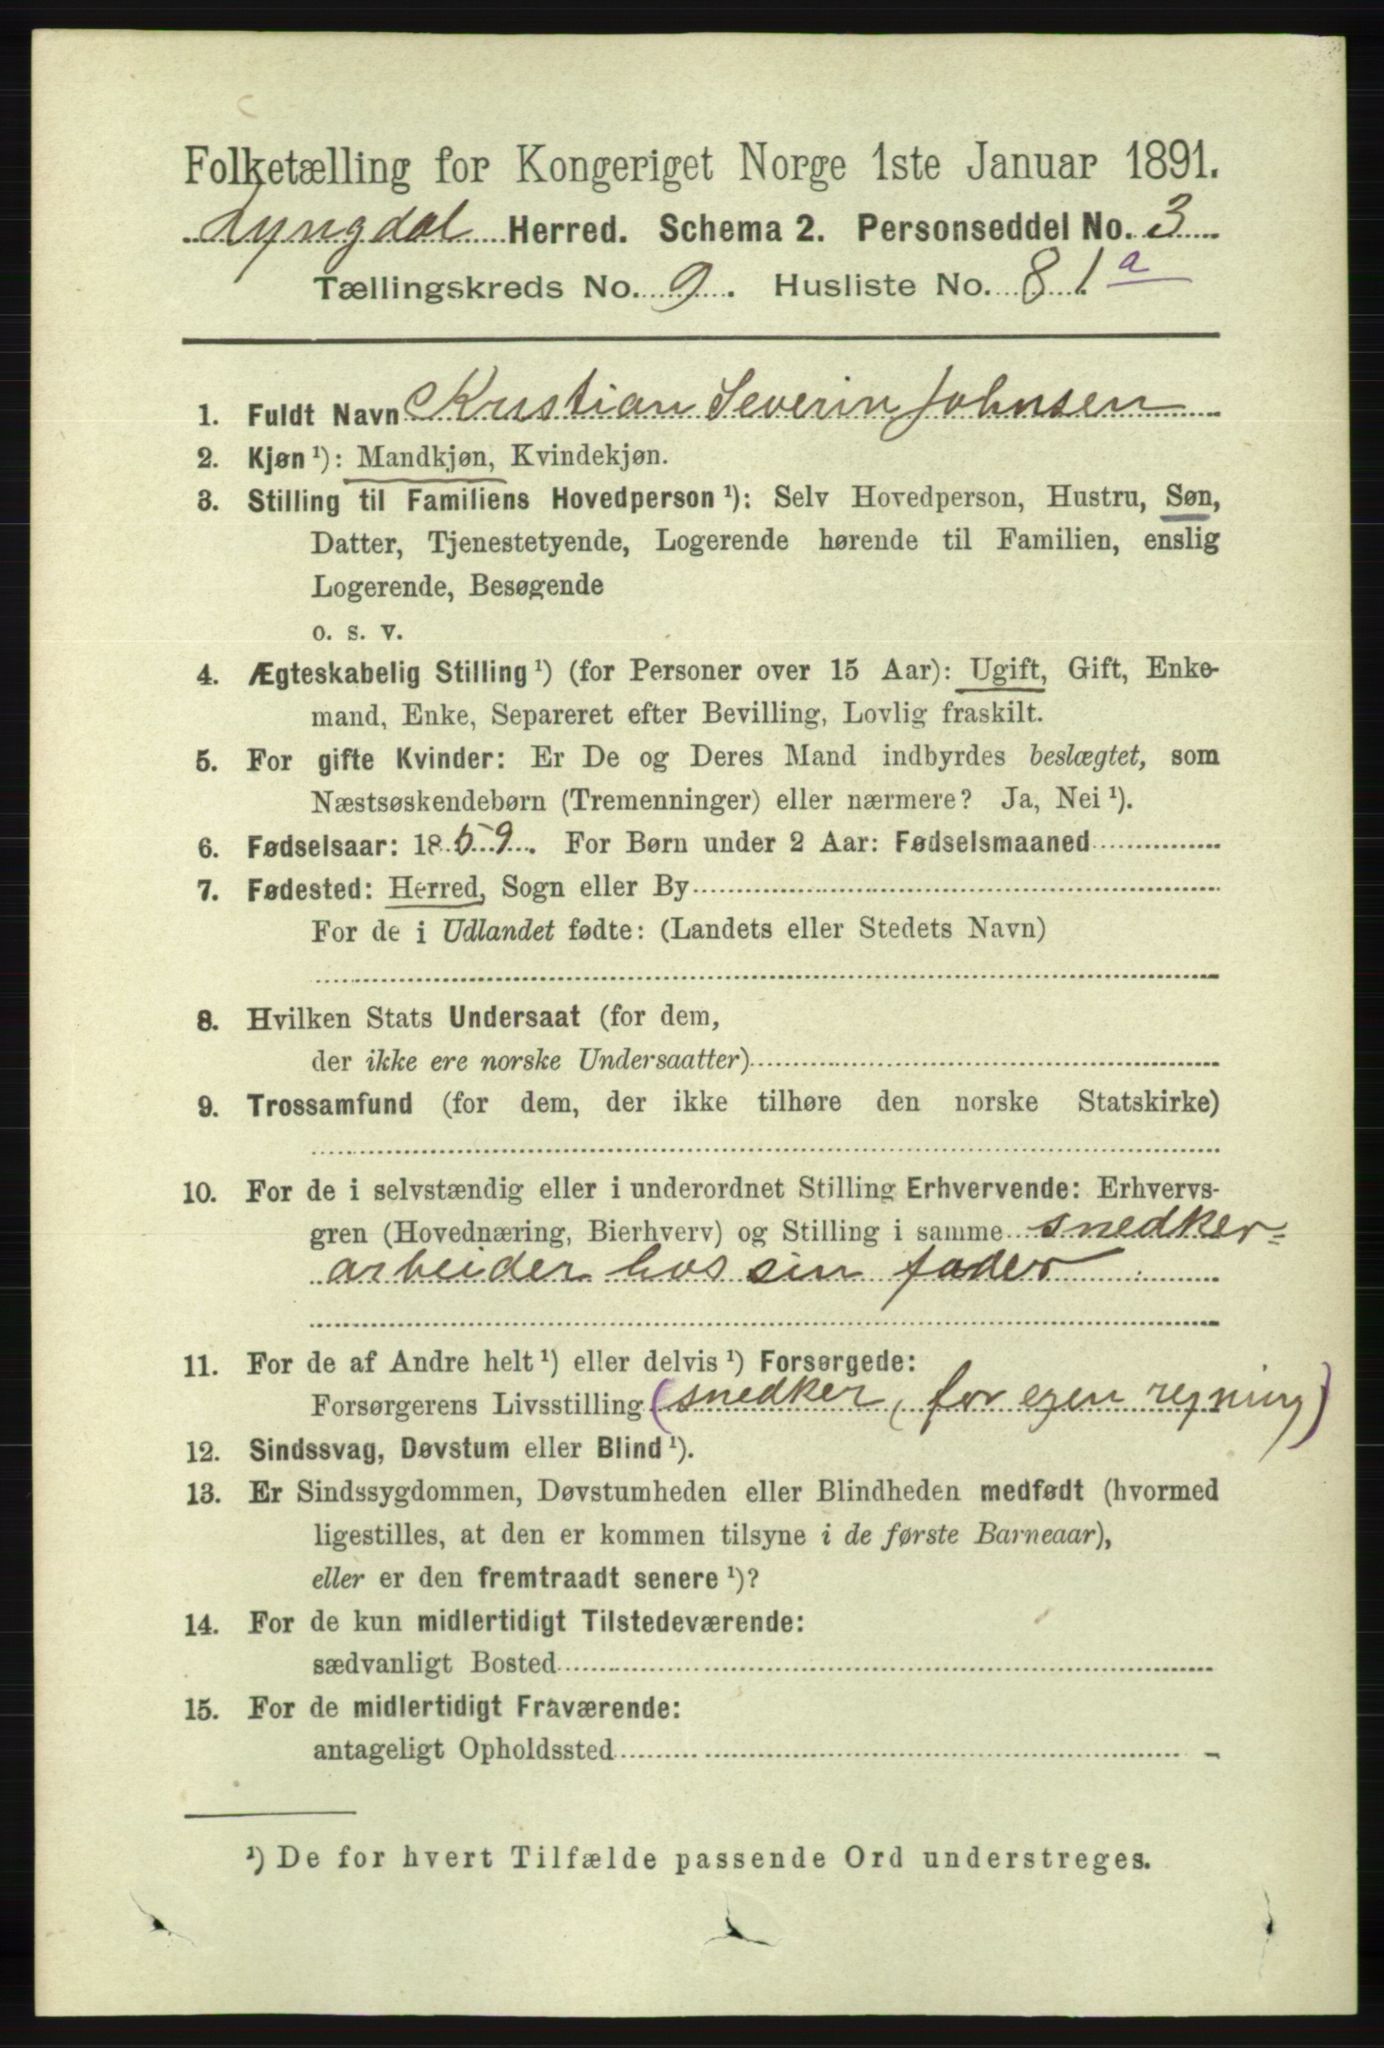 Folketælling for Kongeriget Norge 1ste Januar 1891.
Lyngdal Herred. Schema 2. Personseddel No. 3
Tællingskreds No. 9. Husliste No. 81a
1. Fuldt Navn Kristian Severin Johnsen
2. Kjøn ¹): Mandkjøn, Kvindekjøn.
3. Stilling til Familiens Hovedperson ¹): Selv Hovedperson, Hustru, Søn,
Datter, Tjenestetyende, Logerende hørende til Familien, enslig
Logerende, Besøgende
o. s. v.
4. Ægteskabelig Stilling ¹) (for Personer over 15 Aar): Ugift, Gift, Enke-
mand, Enke, Separeret efter Bevilling, Lovlig fraskilt.
5. For gifte Kvinder: Er De og Deres Mand indbyrdes beslægtet, som
Næstsøskendebørn (Tremenninger) eller nærmere? Ja, Nei ¹).
6. Fødselsaar: 1859. For Børn under 2 Aar: Fødselsmaaned
7. Fødested: Herred, Sogn eller By
For de i Udlandet fødte: (Landets eller Stedets Navn)
8. Hvilken Stats Undersaat (for dem,
der ikke ere norske Undersaatter)
9. Trossamfund (for dem, der ikke tilhøre den norske Statskirke)
10. For de i selvstændig eller i underordnet Stilling Erhvervende: Erhvervs-
gren (Hovednæring, Bierhverv) og Stilling i samme snedker-
arbeider hos sin fader
11. For de af Andre helt ¹) eller delvis ¹) Forsørgede:
Forsørgerens Livsstilling (snedker, for egen regning)
12. Sindssvag, Døvstum eller Blind ¹).
13. Er Sindssygdommen, Døvstumheden eller Blindheden medfødt (hvormed
ligestilles, at den er kommen tilsyne i de første Barneaar),
eller er den fremtraadt senere ¹)?
14. For de kun midlertidigt Tilstedeværende:
sædvanligt Bosted
15. For de midlertidigt Fraværende:
antageligt Opholdssted
¹) De for hvert Tilfælde passende Ord understreges.